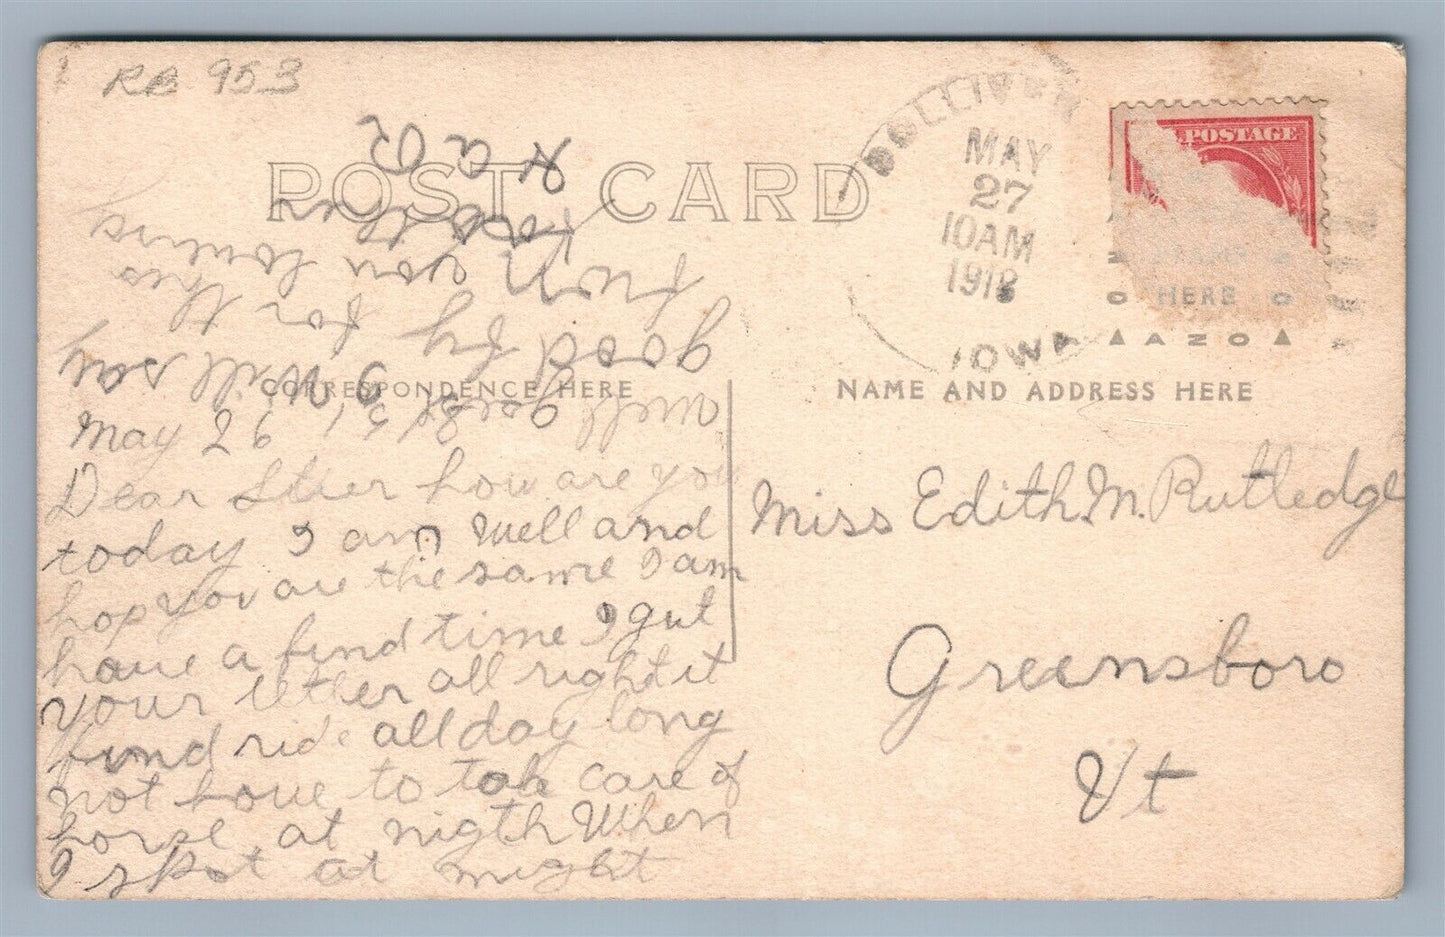 RB 953
POST CARD
DOLLIVER
MAY
27
10AM
1918
IOWA
POSTAGE
HERE
AZO
CORRESPONDENCE HERE
NAME AND ADDRESS HERE
May 26
Dear how are you
today I am well and
hop you are the same I am
have a find time I gut
your letter all right it
find ride all day long
not have to take care of
horse at nigth When
I spot at might
I Will say
good by for this
from you loveing
H a R
Miss Edith M. Rutledge
Greensboro
Vt